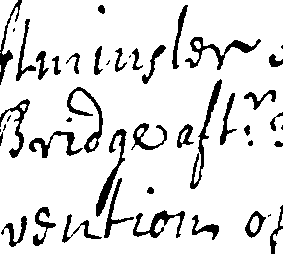 stminster
Bridge aft.r
vention of